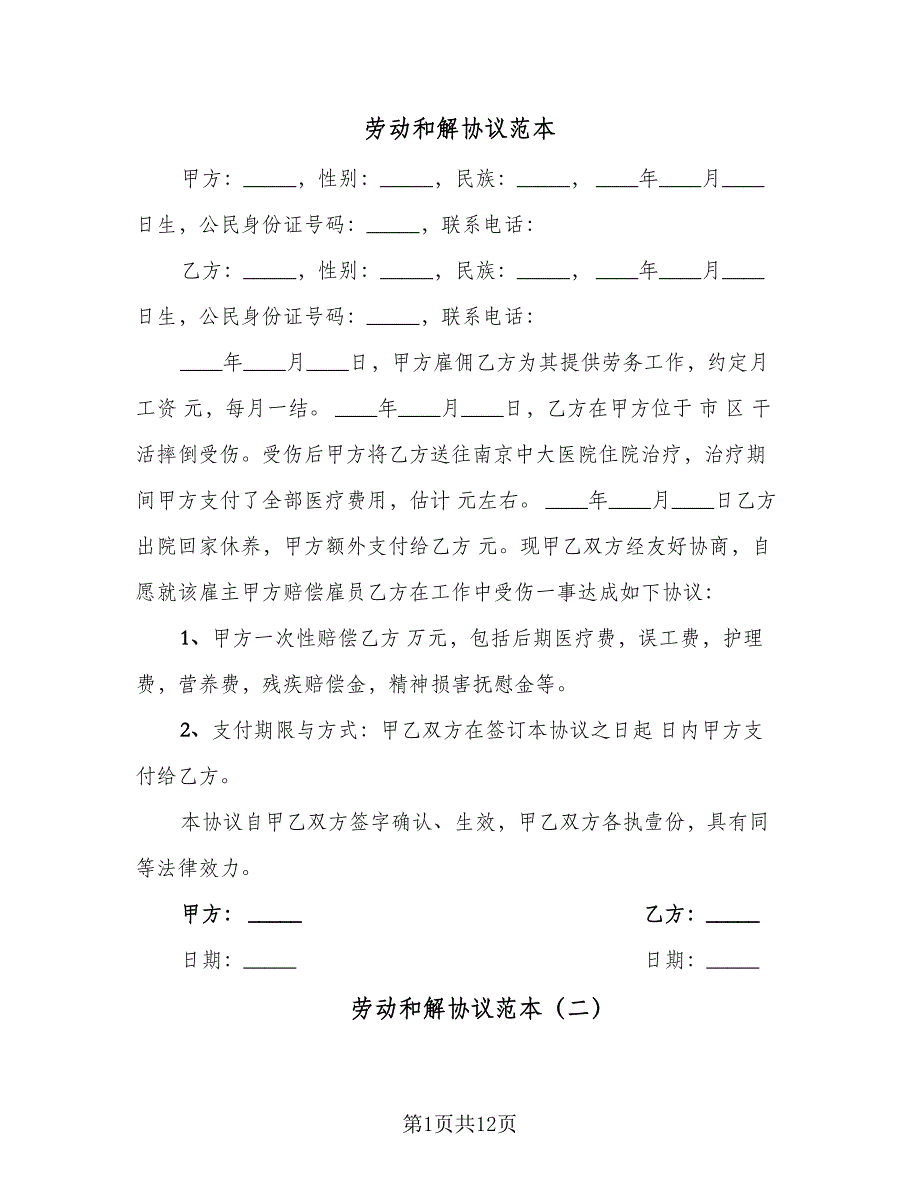 劳动和解协议范本
甲方：_____，性别：_____，民族：_____， ____年____月____
日生，公民身份证号码：_____，联系电话：
乙方：_____，性别：_____，民族：_____， ____年____月____
日生，公民身份证号码：_____，联系电话：
____年____月____日，甲方雇佣乙方为其提供劳务工作，约定月
工资 元，每月一结。 ____年____月____日，乙方在甲方位于 市 区 干
活摔倒受伤。受伤后甲方将乙方送往南京中大医院住院治疗，治疗期
间甲方支付了全部医疗费用，估计 元左右。 ____年____月____日乙方
出院回家休养，甲方额外支付给乙方 元。现甲乙双方经友好协商，自
愿就该雇主甲方赔偿雇员乙方在工作中受伤一事达成如下协议：
1、甲方一次性赔偿乙方 万元，包括后期医疗费，误工费，护理
费，营养费，残疾赔偿金，精神损害抚慰金等。
2、支付期限与方式：甲乙双方在签订本协议之日起 日内甲方支
付给乙方。
本协议自甲乙双方签字确认、生效，甲乙双方各执壹份，具有同
等法律效力。
甲方： _____ 乙方：_____
日期：_____ 日期：_____
劳动和解协议范本（二）
第1页共12页